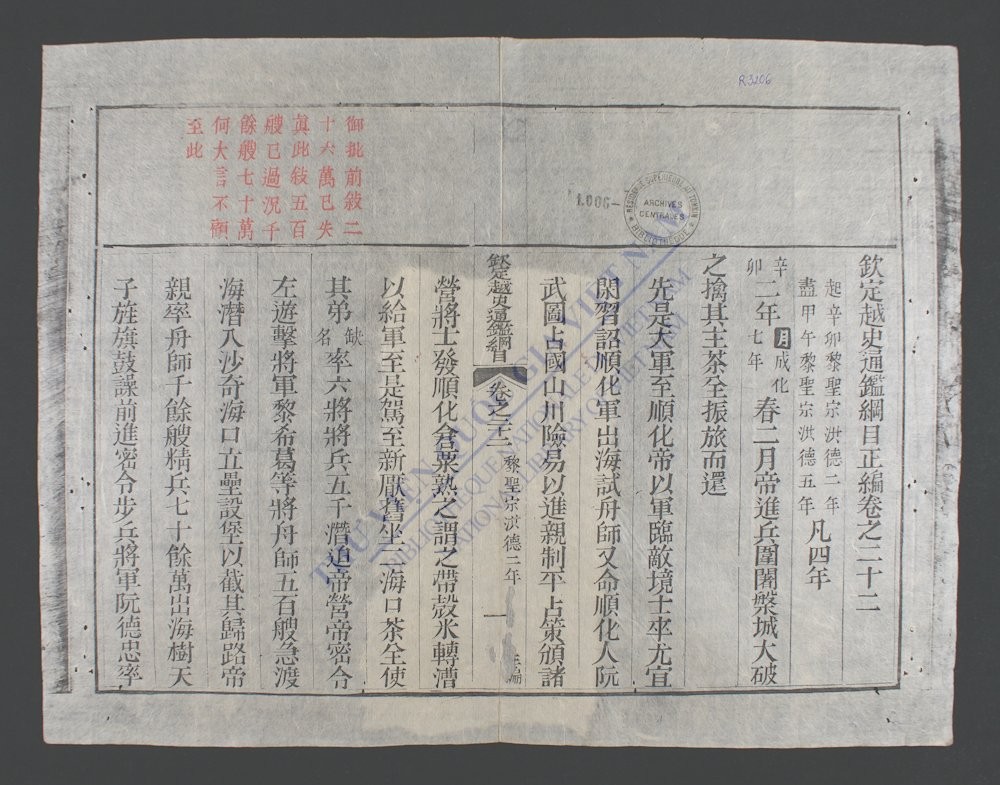 R.3206
御批前敘二
十六萬已失
眞此敘五百
艘已過況千
餘艘七十萬
何大言不顧
至此
1.006-
RÉSIDENCE SUPÉRIEURE AU TONKIN
ARCHIVES
CENTRALES
BIBLIOTHÈQUE
欽定越史通鑑綱目正編卷之二十二
起辛卯黎聖宗洪德二年
盡甲午黎聖宗洪德五年
凡四年
辛卯二年 明成化七年 春二月帝進兵圍闍槃城大破
之擒其主茶全振旅而還
先是大軍至順化帝以軍臨敵境士卒尤宜
閑習詔順化軍出海試舟師又命順化人阮
武圖占國山川險易以進親制平占策頒諸
欽定越史通鑑綱目 卷之二十二 黎聖宗洪德二年 一 正編
營將士發順化倉粟熟之謂之帶殼米轉漕
以給軍至是駕至新厭舊坐二海口茶全使
其弟 缺名 率六將將兵五千潛迫帝營帝密令
左遊擊將軍黎希葛等將舟師五百艘急渡
海潛入沙奇海口立壘設堡以截其歸路帝
親率舟師千餘艘精兵七十餘萬出海樹天
子旌旗鼓譟前進密令步兵將軍阮德忠率
THƯ VIỆN QUỐC GIA VIỆT NAM
BIBLIOTHEQUE NATIONALE DU VIETNAM
NATIONAL LIBRARY OF VIETNAM